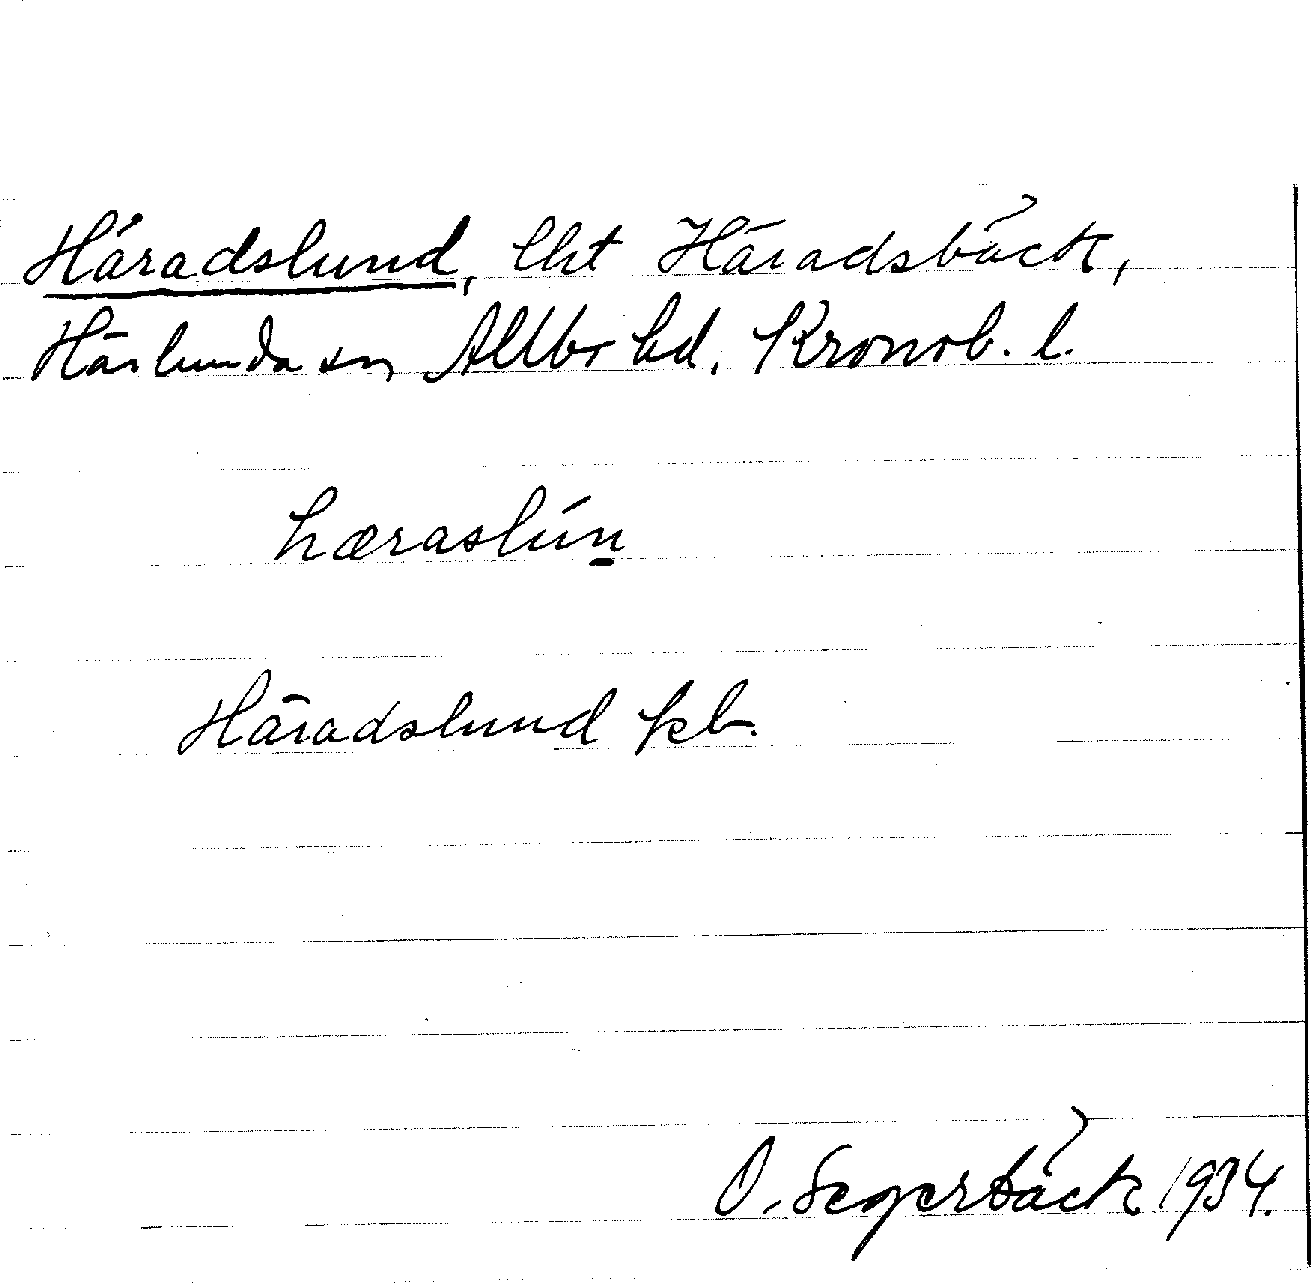 Häradslund, lht Häradsbäck,
Härlunda sn Allbo hd, Kronob. l.
hæraslún
Häradslund kb.
O. Segerbäck 1934.